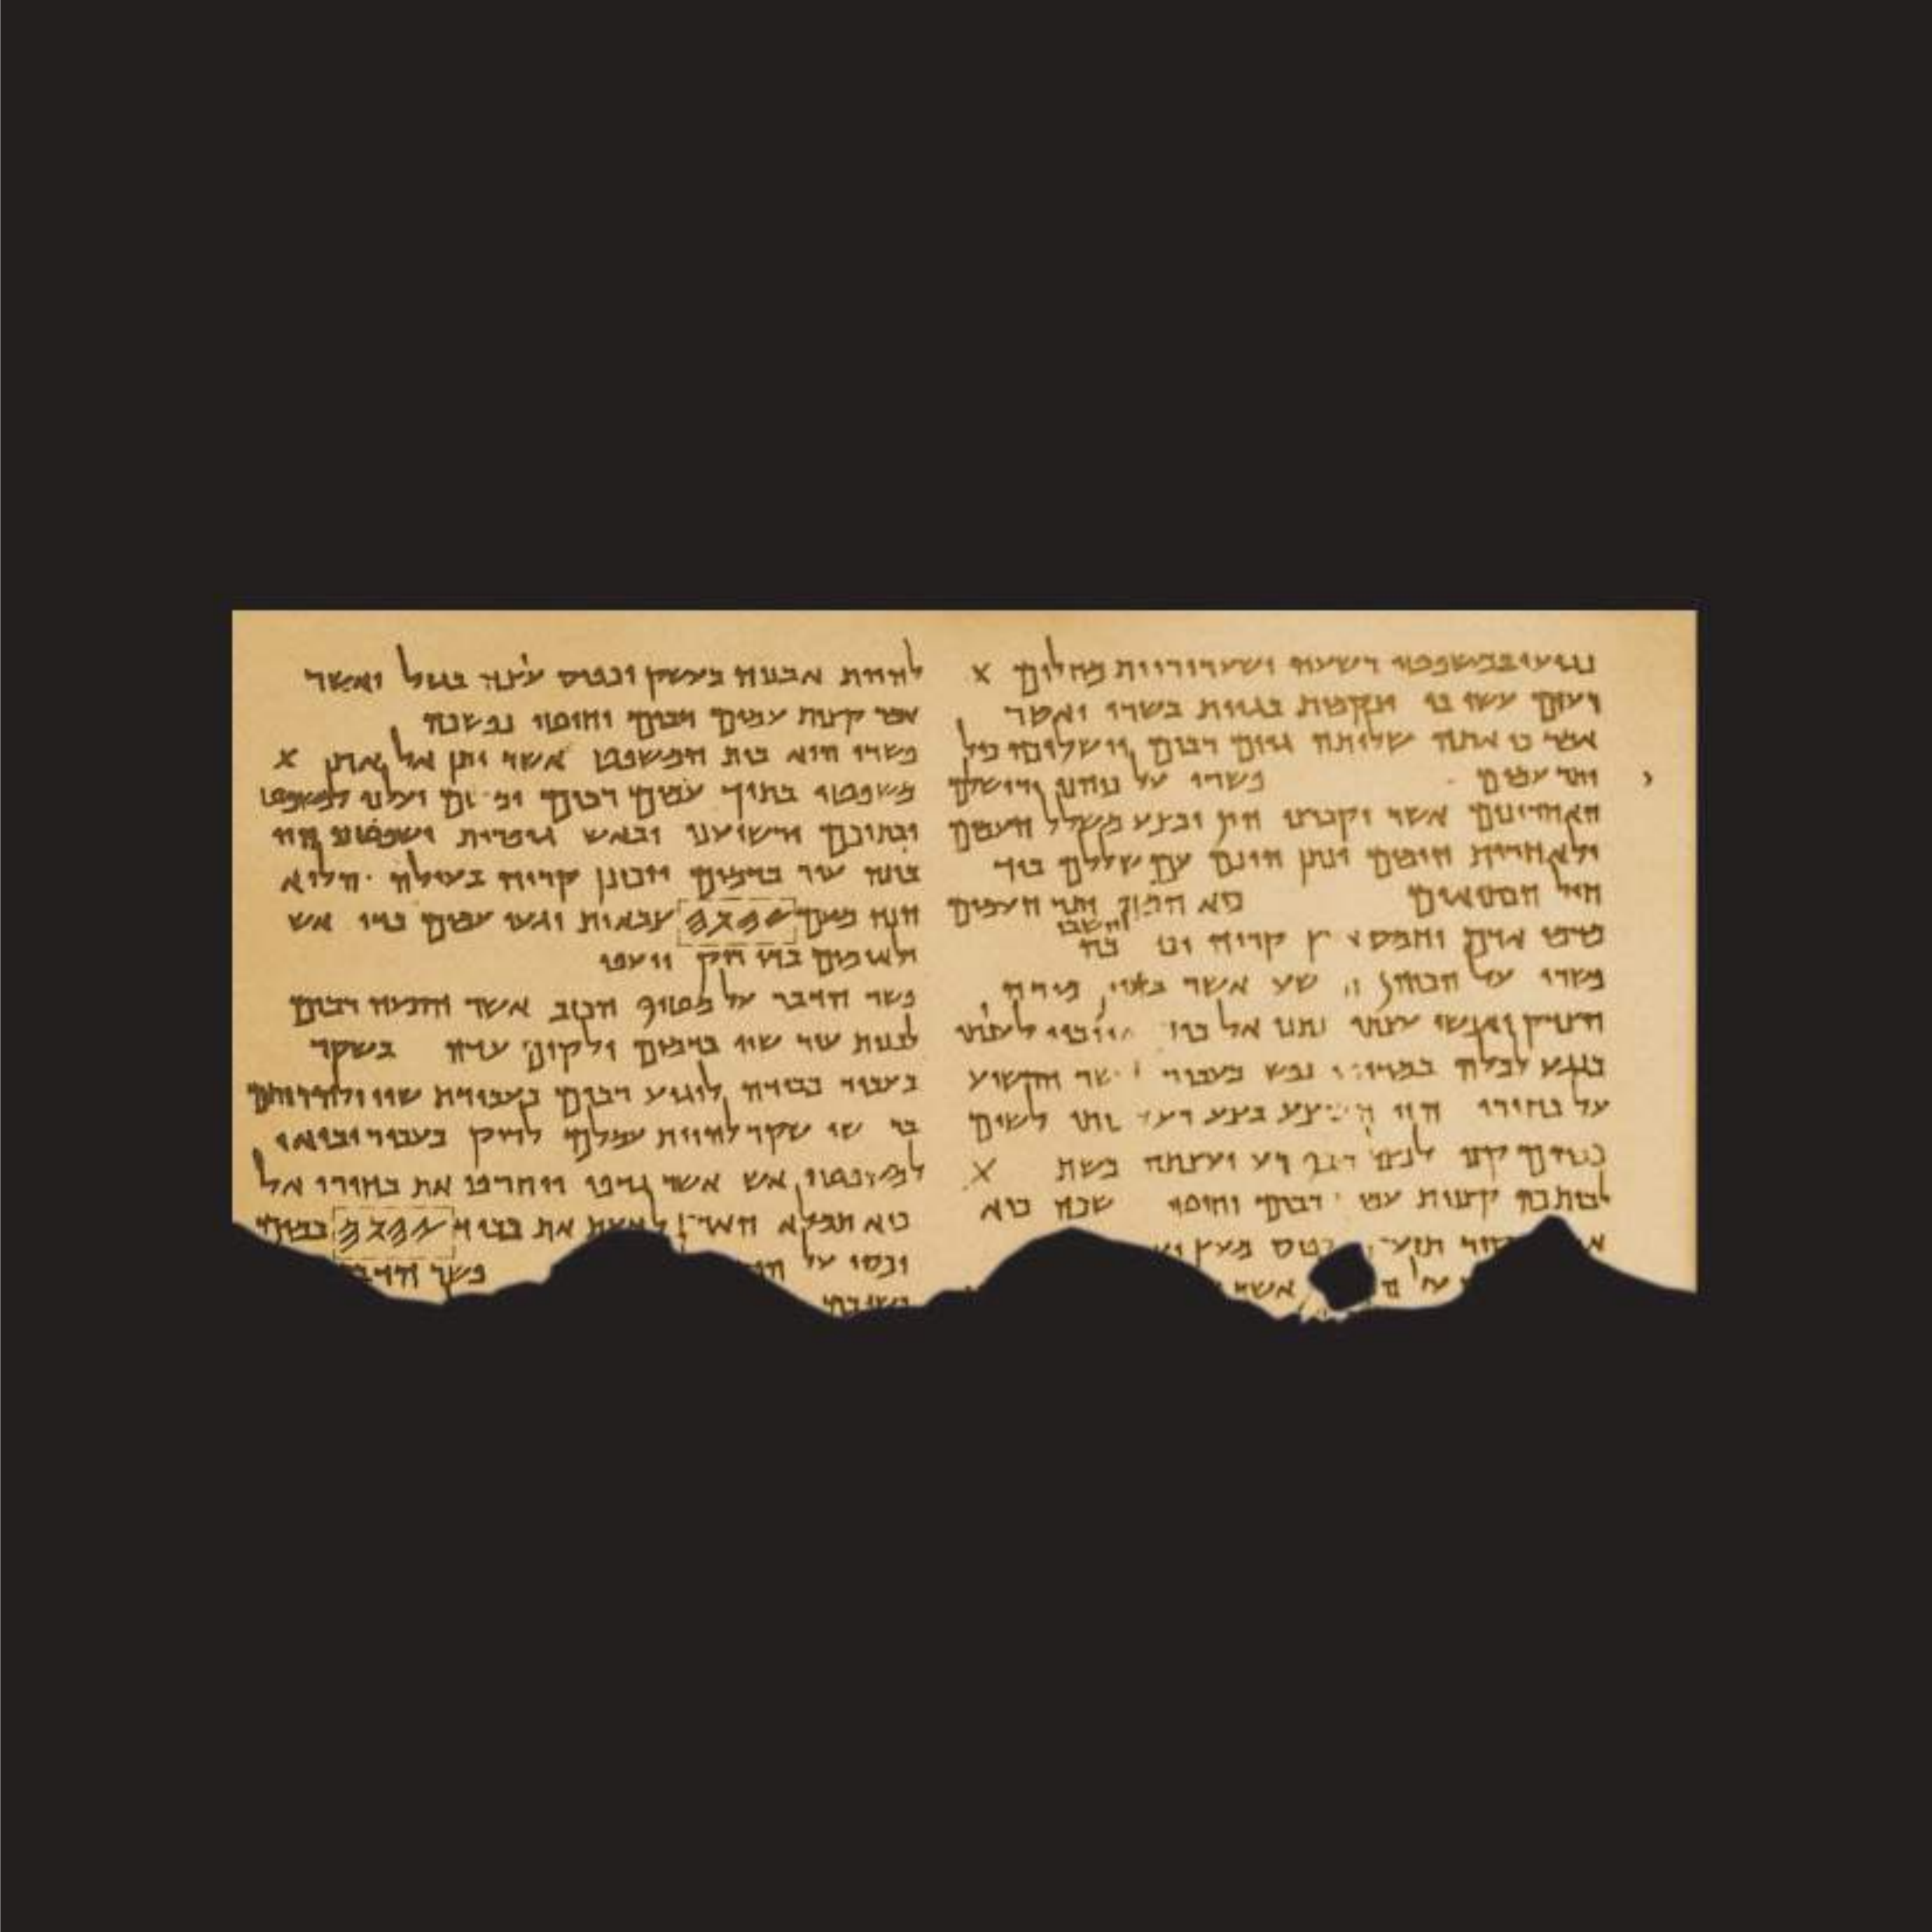 נגועו במשפטי רשעה ושערוריות מחלים X
רעים עשו בו ונקמות בגוית בשרו ואשר
אמר כי אתה שלותה גוים רבים וישלוכה כול
יתר עמים פשרו על כוהני ירושלם
האחרונים אשר יקבוצו הון ובצע משלל העמים
ולאחרית הימים ינתן הונם עם שללם ביד
חיל הכתיאים כיא המה יתר העמים
מדמי אדם וחמס ארץ קריה וכול יושבי בה
פשרו על הכוהן הרשע אשר מורה
הצדק ואנשי עצתו נתנו אל אויביו לענותו
בנגע לכלה במרורי נפש בעבור אשר הרשיע
על בחירו הוי הבוצע בצע רע לביתו לשום
במרום קנו לנצל מכף רע יעצתה בשת X
לביתכה קצוות עמים רבים וחוטי נפשכה כיא
מקיר תזעק וכפיס מעץ
אשר
להיות אבניה בעשק וכפיס עיצה בגזל ואשר
אמר קצות עמים רבים וחוטי נפשכה
פשרו הוא בית המשפט אשר יתן אל את X
משפטו בתוך עמים רבים ומשם יעלנו למשפט
ובתוכם ירשיענו ובאש גופרית ישפטנו הוי
בונה עיר בדמים ויכונן קריה בעולה הלוא
הנה מעם 𐤉𐤄𐤅𐤄 צבאות יגעו עמים בדי אש
ולאומים בדי ריק ייעפו
פשר הדבר על מטיף הכזב אשר התעה רבים
לבנות עיר שוו בדמים ולקים עדה בשקר
בעבור כבודה לוגיע רבים בעבודת שוו ולהרותם
במעשי שקר להיות עמלם לריק בעבור יבואו
למשפטי אש אשר גדפו ויחרפו את בחירי אל
כיא תמלא הארץ לדעת את כבוד 𐤉𐤄𐤅𐤄 כמים
יכסו על הים פשר הדבר